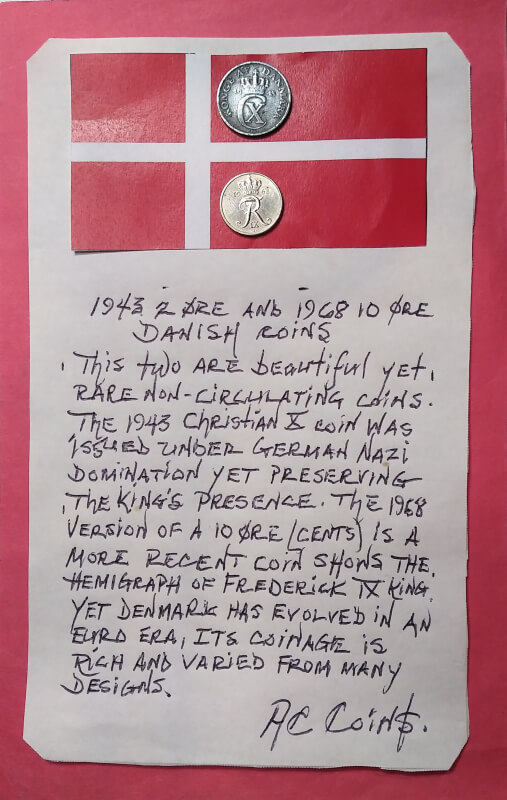 KONGE AF DANMARK
CX
R
IX
1943 2 ØRE AND 1968 10 ØRE
DANISH COINS
This two ARE beautiful yet,
RARE NON-CIRCULATING COINS.
THE 1943 Christian X COIN WAS
ISSUED UNDER GERMAN NAZI
DOMINATION YET PRESERVING
THE KING'S PRESENCE. THE 1968
VERSION OF A 10 ØRE (CENTS) IS A
MORE RECENT COIN SHOWS THE
HEMIGRAPH OF FREDERICK IX KING.
YET DENMARK HAS EVOLVED IN AN
EURO ERA, ITS COINAGE IS
RICH AND VARIED FROM MANY
DESIGNS.
AC COIN$.